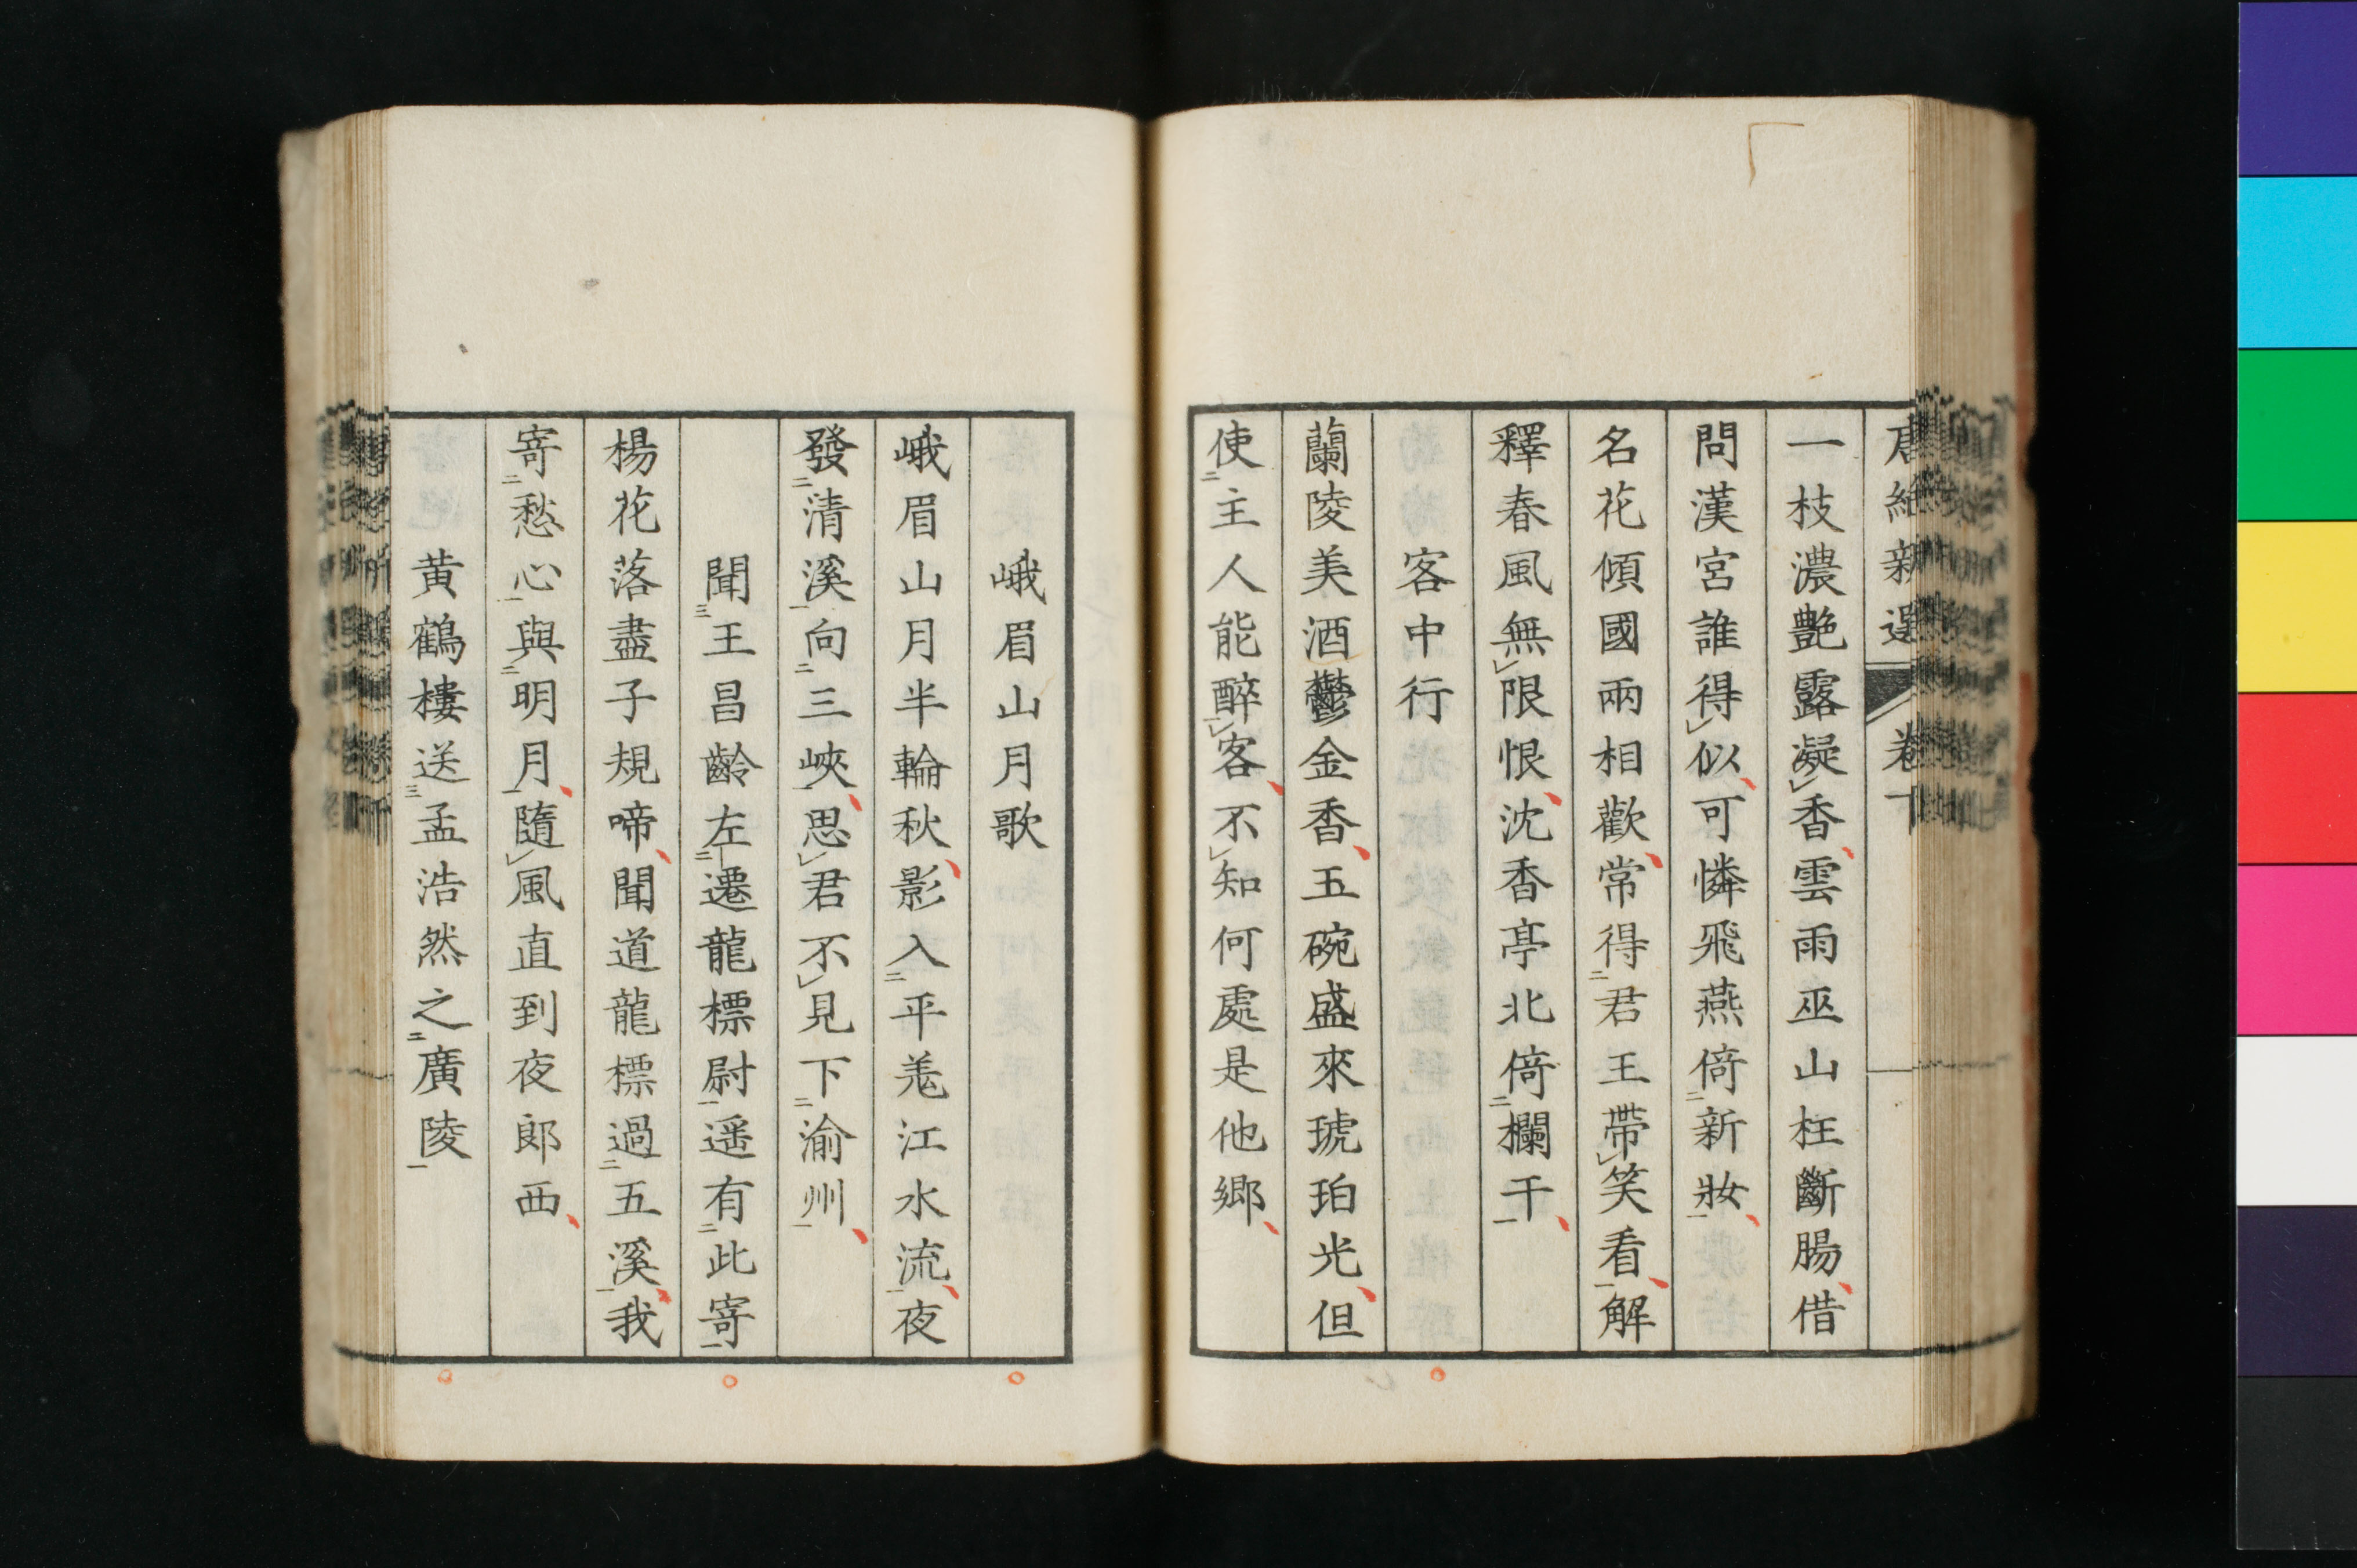 唐絶新選 卷下
一枝濃艶露凝香雲雨巫山枉斷腸借
問漢宮誰得似可憐飛燕倚新妝
名花傾國兩相歡常得君王帶笑看解
釋春風無限恨沈香亭北倚欄干
客中行
蘭陵美酒鬱金香五碗盛來琥珀光但
使主人能醉客不知何處是他鄉
峨眉山月歌
峨眉山月半輪秋影入平羗江水流夜
發清溪向三峽思君不見下渝州
聞王昌齡左遷龍標尉遥有此寄
楊花落盡子規啼聞道龍標過五溪我
寄愁心與明月隨風直到夜郎西
黄鶴樓送孟浩然之廣陵